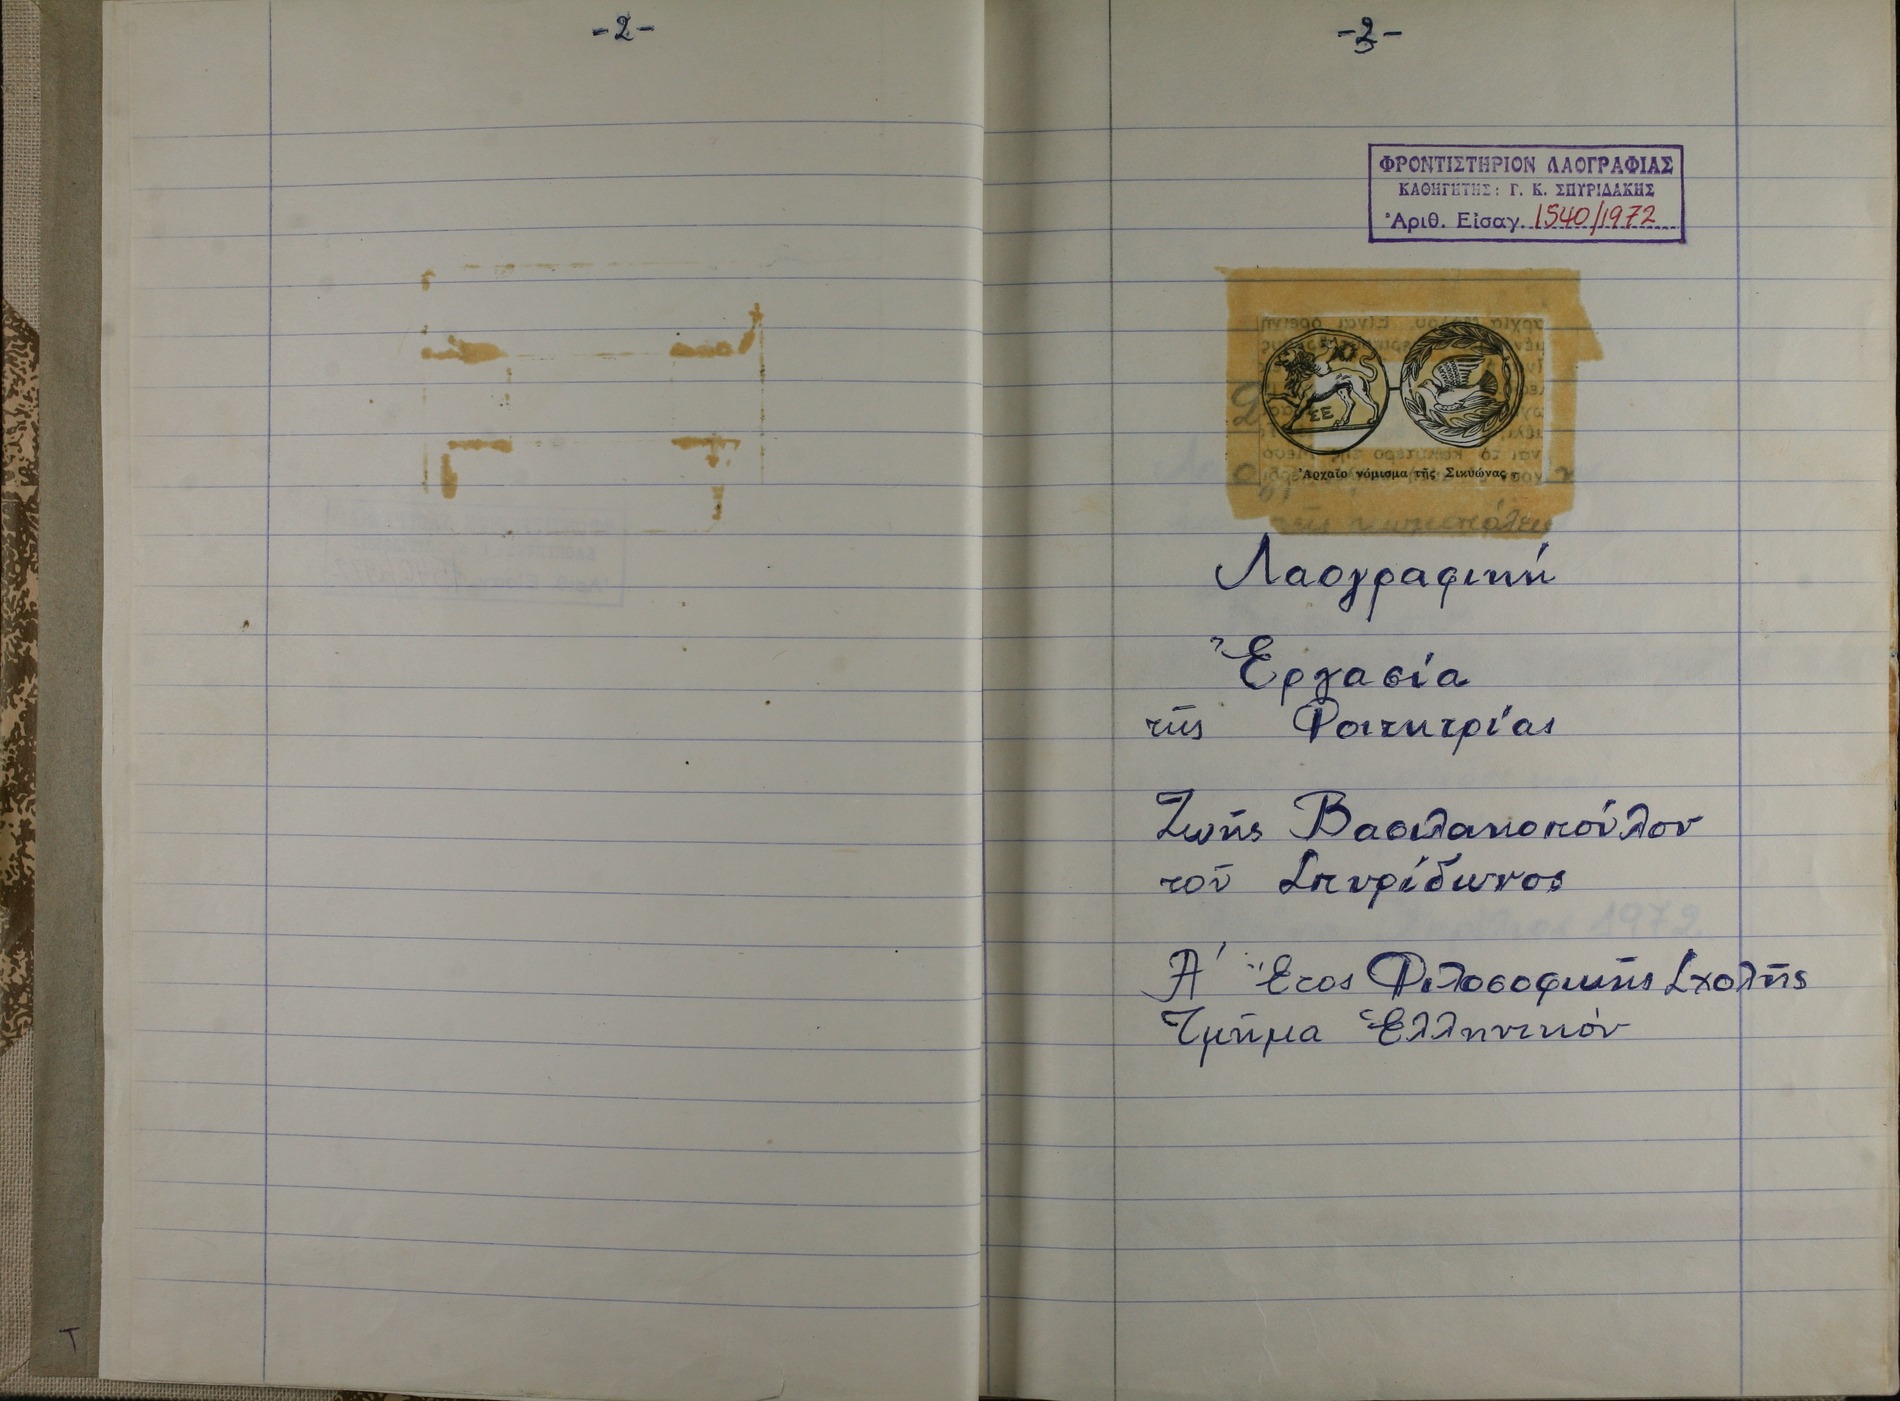 -2-
-3-
ΦΡΟΝΤΙΣΤΗΡΙΟΝ ΛΑΟΓΡΑΦΙΑΣ
ΚΑΘΗΓΗΤΗΣ: Γ. Κ. ΣΠΥΡΙΔΑΚΗΣ
Ἀριθ. Εἰσαγ. 1540/1972
ΣΕ
Ἀρχαῖο νόμισμα τῆς Σικυώνας
Λαογραφική
Ἐργασία
τῆς Φοιτητρίας
Ζωῆς Βασιλακοπούλου
τοῦ Σπυρίδωνος
Α' Ἔτος Φιλοσοφικῆς Σχολῆς
Τμῆμα Ἑλληνικόν
Τ